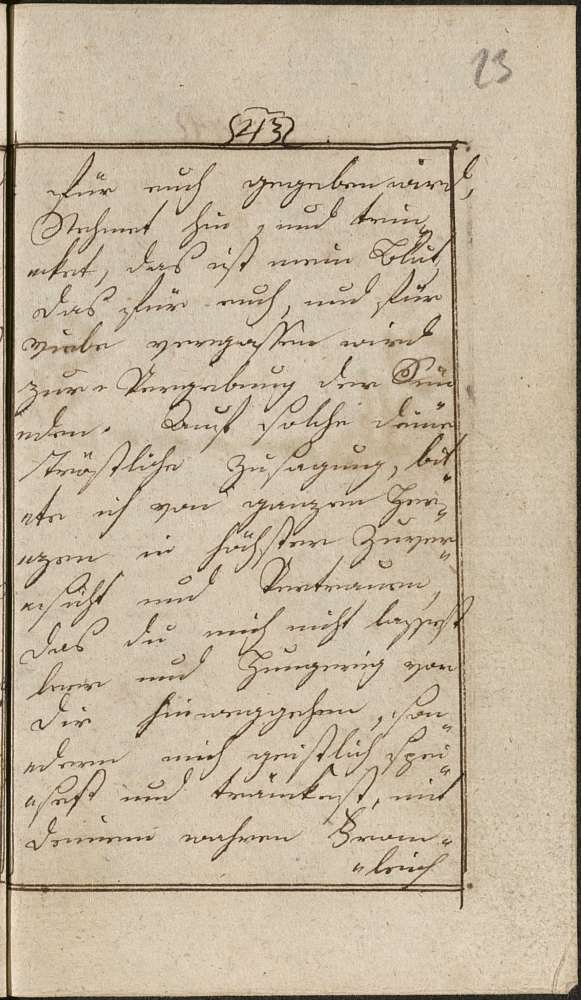 23
43
für euch gegeben wird,
Nehmet hin, und trin„
„cket, das ist mein Blut,
das für euch, und für
viele vergossen wird
zur Vergebung der Sün
„den. Auf solche deine
tröstliche Zusagung, bit„
„te ich von ganzen Her„
„zen in höchster Zuver„
„sicht und Vertrauen,
das du mich nicht lassest
leer und Hungerig von
dir hinweggehen, son„
„dern mich geistlich spei„
„sest und tränckest, mit
deinem wahren Fron„
„leich